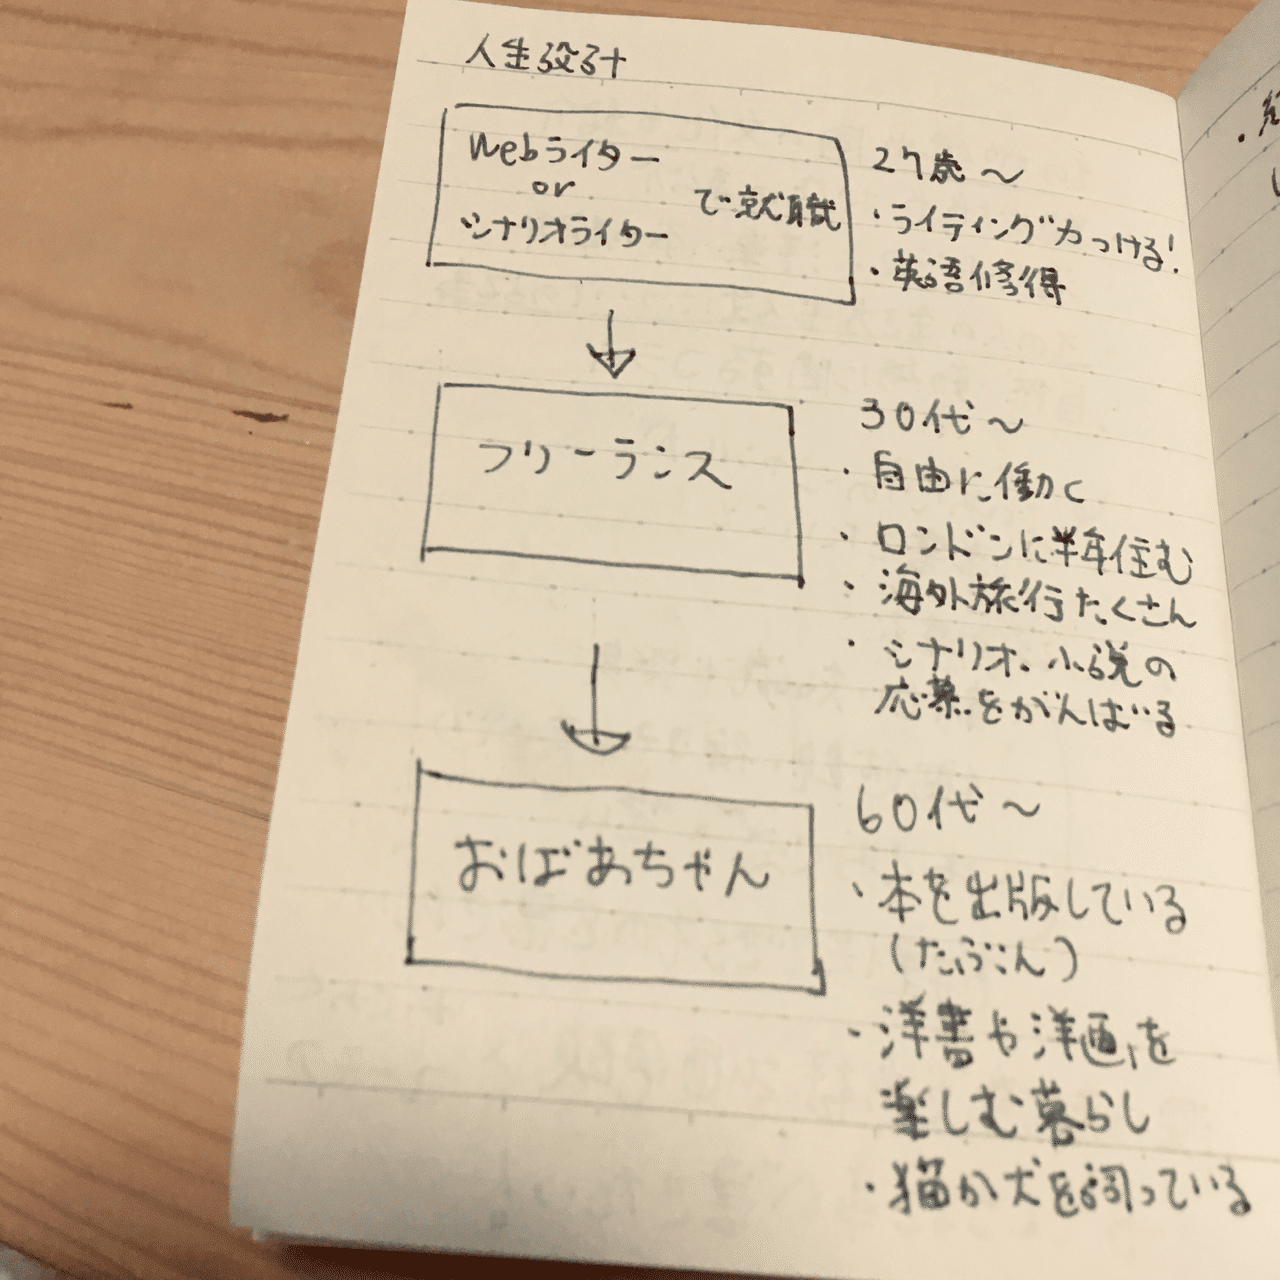 人生設計
Webライター
or
シナリオライター
で就職
27歳〜
・ライティング力つける!
・英語修得
フリーランス
30代〜
・自由に働く
・ロンドンに半年住む
・海外旅行たくさん
・シナリオ、小説の
応募をがんばいる
おばあちゃん
60代〜
・本を出版している
(たぶん)
・洋書や洋画を
楽しむ暮らし
・猫か犬を飼っている